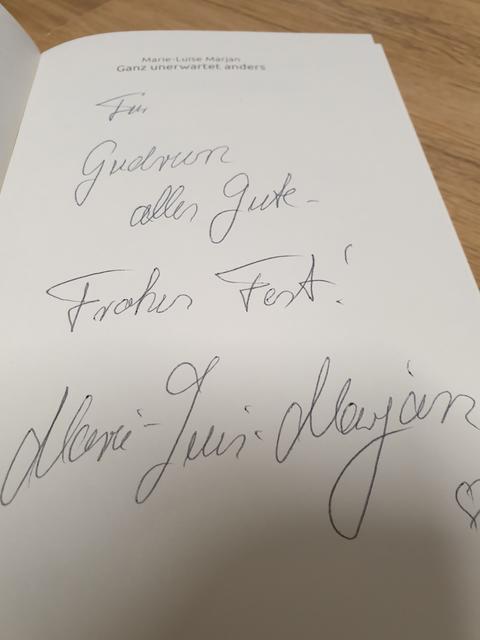 Marie-Luise Marjan
Ganz unerwartet anders
Für
Gudrun
alles Gute -
Frohes Fest!
Marie-Luise Marjan